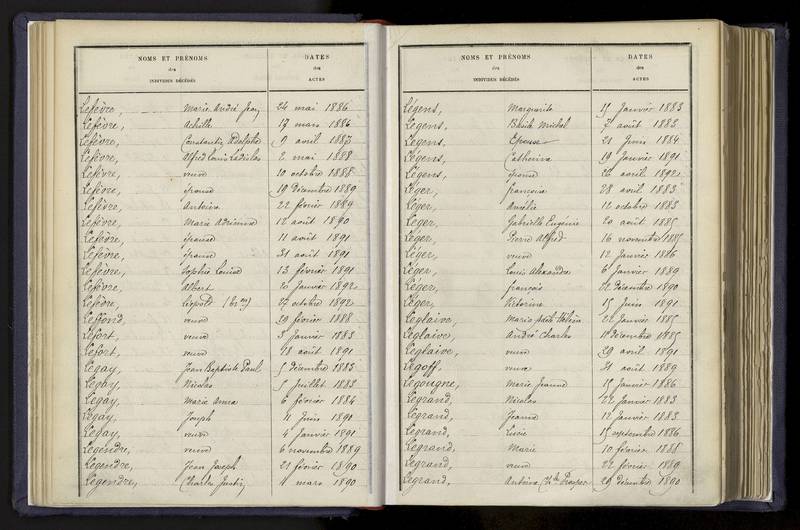 NOMS ET PRÉNOMS
des
INDIVIDUS DÉCÉDÉS
DATES
des
ACTES
Lefèvre, Marie André Jean 24 mai 1886
Lefèvre, Achille 17 mars 1886
Lefèvre, Constantin Adolphe 9 avril 1887
Lefèvre, Alfred Louis Ladislas 2 mai 1888
Lefèvre, veuve 10 octobre 1888
Lefèvre, épouse 19 Décembre 1889
Lefèvre, Antoine 22 février 1889
Lefèvre, Marie Adrienne 12 août 1890
Lefèvre, épouse 11 août 1891
Lefèvre, épouse 31 août 1891
Lefèvre, Sophie Louise 13 février 1891
Lefèvre, Albert 20 Janvier 1892
Lefèvre, Léopold 27 octobre 1892
Leffond, veuve 29 février 1888
Lefort, veuve 3 Janvier 1883
Lefort, veuve 18 août 1891
Legay, Jean Baptiste Paul 5 Décembre 1883
Legay, Nicolas 5 Juillet 1883
Legay, Marie Anna 6 février 1884
Legay, Joseph 11 Juin 1890
Legay, veuve 4 Janvier 1891
Legendre, veuve 6 novembre 1889
Legendre, Jean Joseph 21 février 1890
Legendre, Charles Justin mars 1890
NOMS ET PRÉNOMS
des
INDIVIDUS DÉCÉDÉS
DATES
des
ACTES
Légens, Marguerite 15 Janvier 1883
Légens, Michel 7 août 1883
Légens, Epouse 21 Juin 1884
Légens, Catherine 19 Janvier 1891
Légens, épouse 26 avril 1892
Léger, françoise 28 avril 1883
Léger, Amélie 12 octobre 1883
Léger, Gabrielle Eugénie 20 août 1885
Léger, Pierre Alfred 16 novembre 1885
Léger, veuve 12 Janvier 1886
Léger, Louis Alexandre 6 Janvier 1889
Léger, françois 22 Décembre 1890
Léger, Victorine 15 Juin 1891
Leglaive, Marie 22 Janvier 1885
Leglaive, André Charles Décembre 1885
Leglaive, veuve 29 avril 1891
Legoff, veuve 31 août 1889
Legougne, Marie Jeanne 15 Janvier 1886
Legrand, Nicolas 22 Janvier 1883
Legrand, Jeanne 12 Janvier 1883
Legrand, Lucie 15 septembre 1886
Legrand, Marie 10 février 1888
Legrand, veuve 22 février 1889
Legrand, Antoine Prosper 29 Décembre 1890